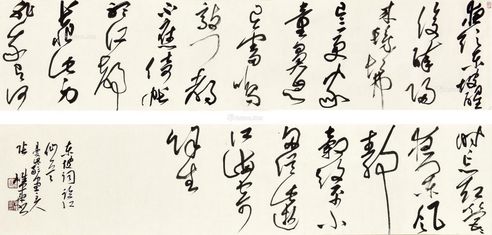 夜饮东坡醒
復醉归
来髣髴
三更家
童鼻息
已雷鸣
敲门都
不应倚杖
听江声
长恨此身
非我有何
时忘却营营
夜阑风
静
縠纹平小
舟从此逝
江海寄
馀生
东坡词临江
仙